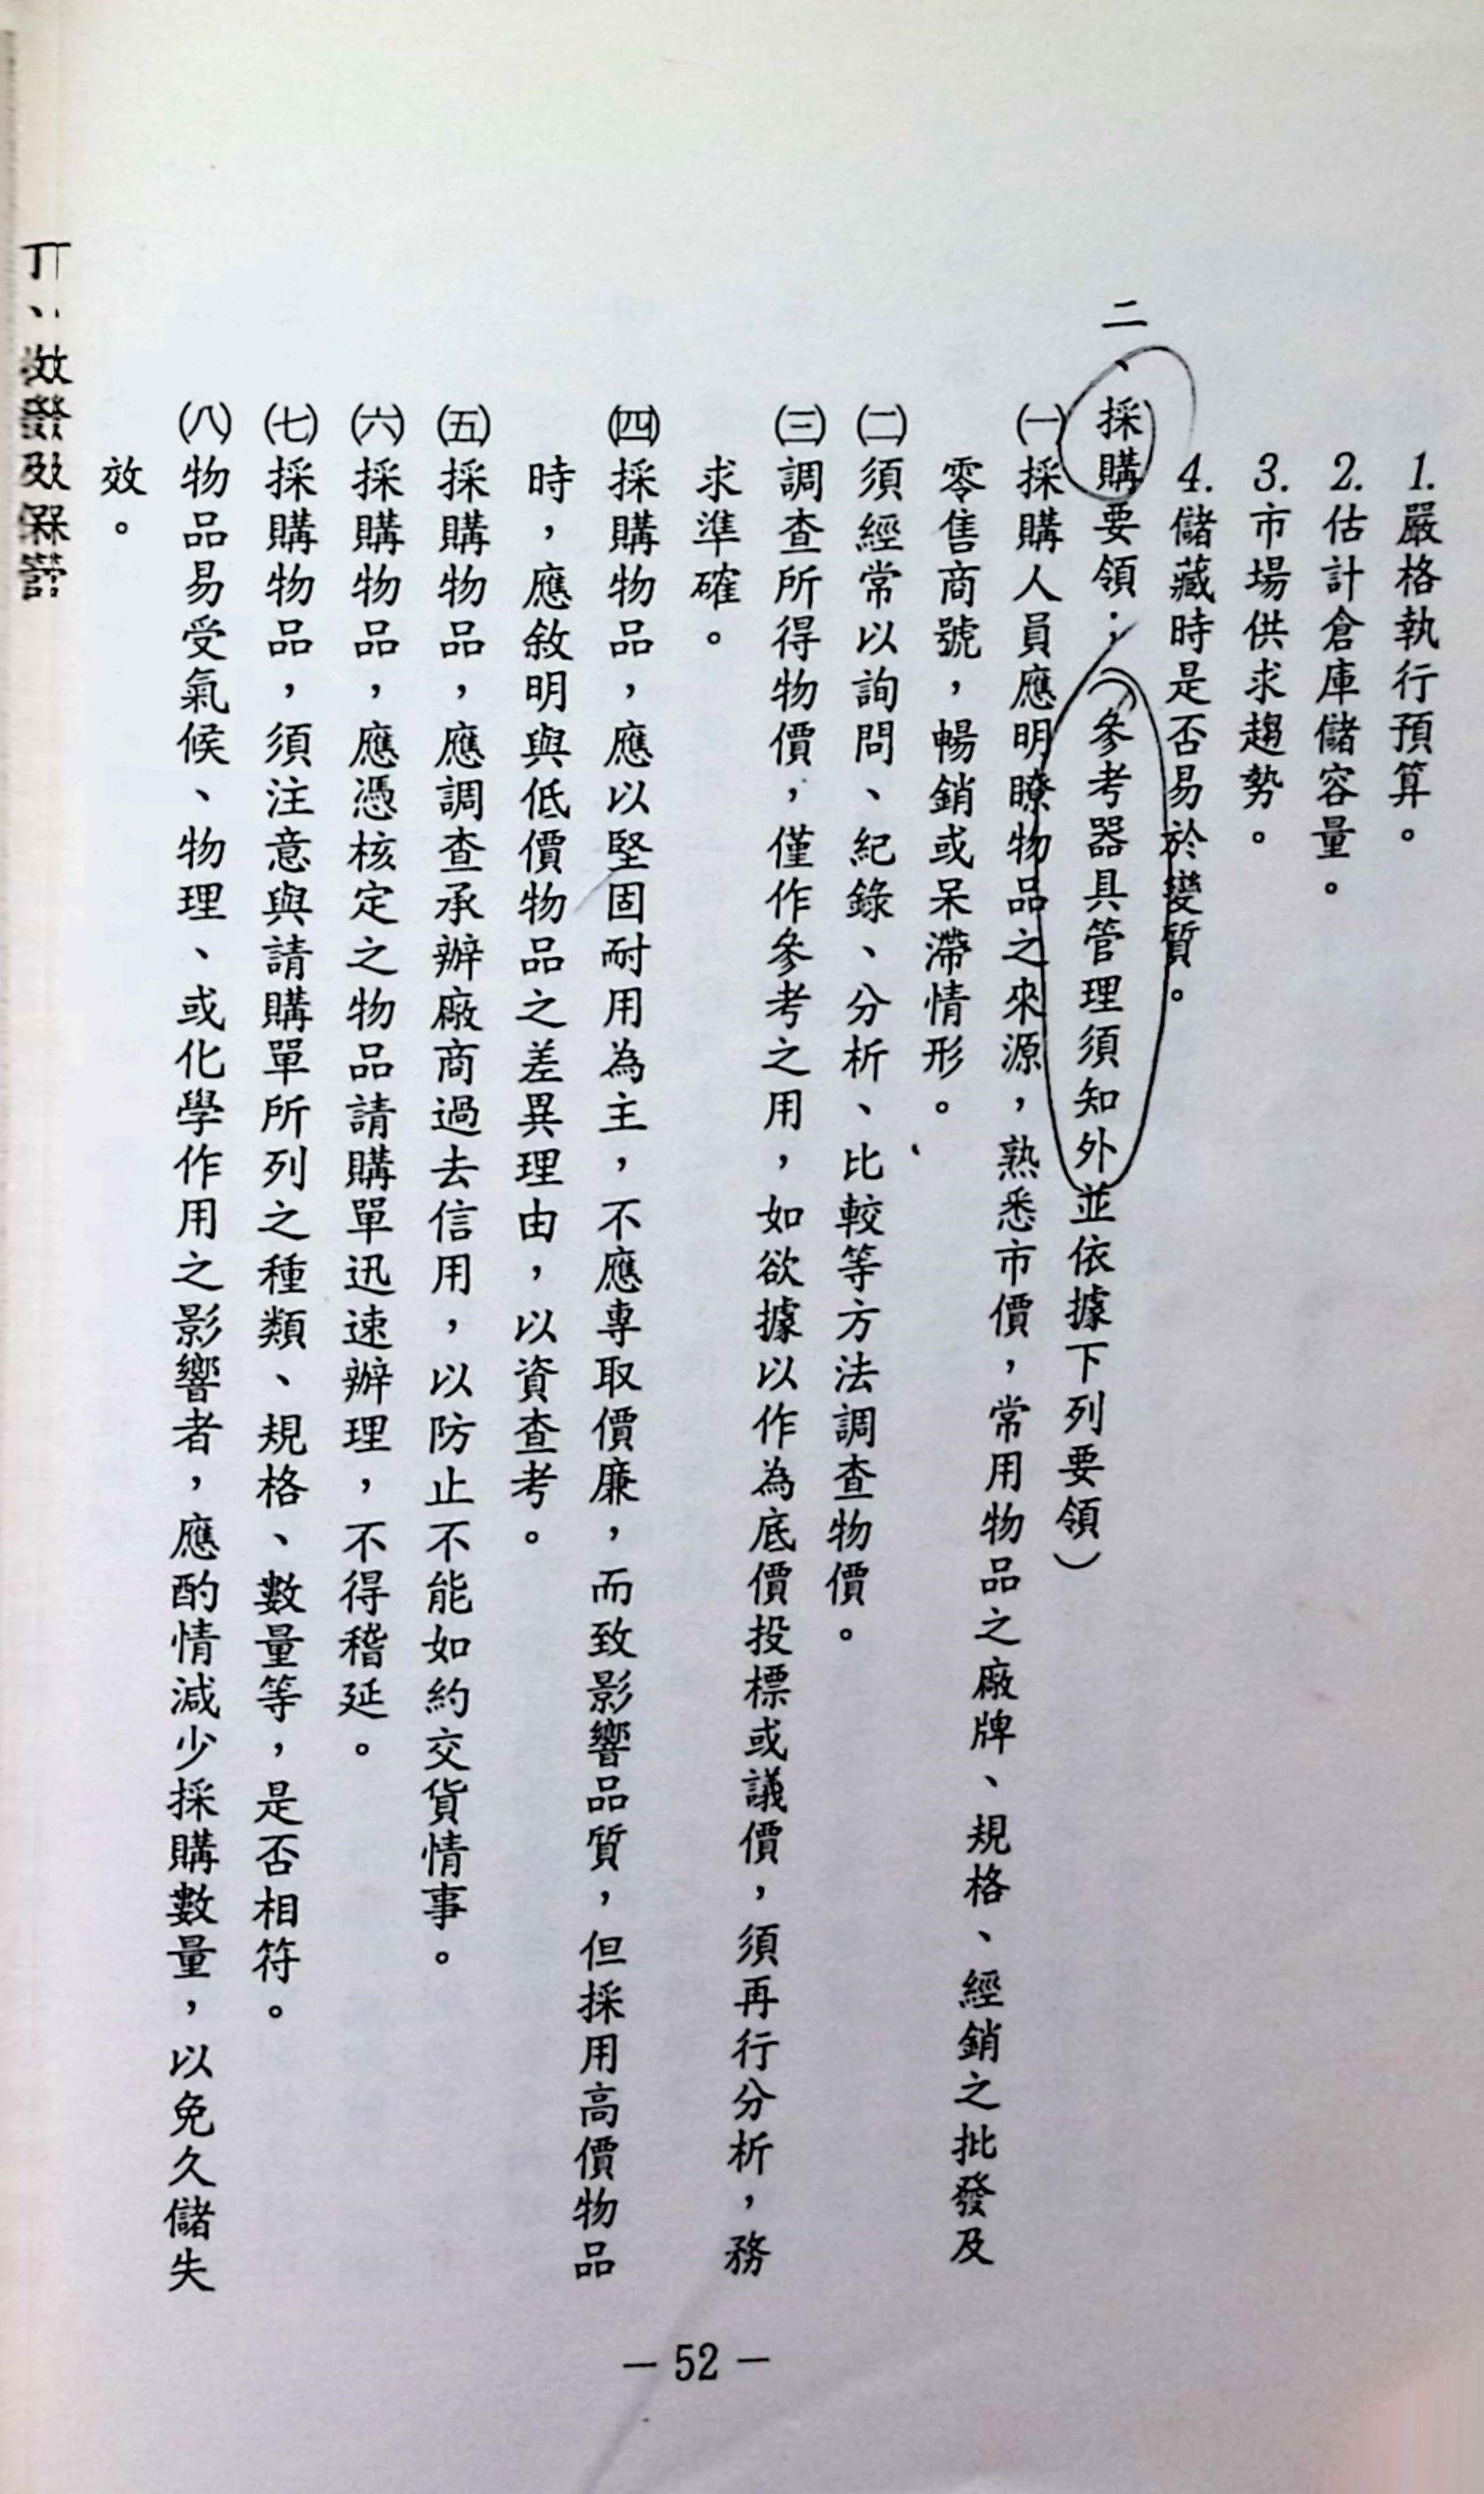 1.嚴格執行預算。
2.估計倉庫儲容量。
3.市場供求趨勢。
4.儲藏時是否易於變質。
二、採購要領：（參考器具管理須知外並依據下列要領）
㈠採購人員應明瞭物品之來源，熟悉市價，常用物品之廠牌、規格、經銷之批發及
零售商號，暢銷或呆滯情形。
㈡須經常以詢問、紀錄、分析、比較等方法調查物價。
㈢調查所得物價，僅作參考之用，如欲據以作為底價投標或議價，須再行分析，務
求準確。
㈣採購物品，應以堅固耐用為主，不應專取價廉，而致影響品質，但採用高價物品
時，應敘明與低價物品之差異理由，以資查考。
㈤採購物品，應調查承辦廠商過去信用，以防止不能如約交貨情事。
㈥採購物品，應憑核定之物品請購單迅速辦理，不得稽延。
㈦採購物品，須注意與請購單所列之種類、規格、數量等，是否相符。
㈧物品易受氣候、物理、或化學作用之影響者，應酌情減少採購數量，以免久儲失
效。
－52－